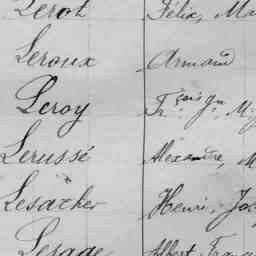 Lerot Félix, Ma
Leroux Armand
Leroy Fr.çois Jn, M
Lerussé Alexandre, M
Lesacher Henri, Jo
Lesage Albert Franç